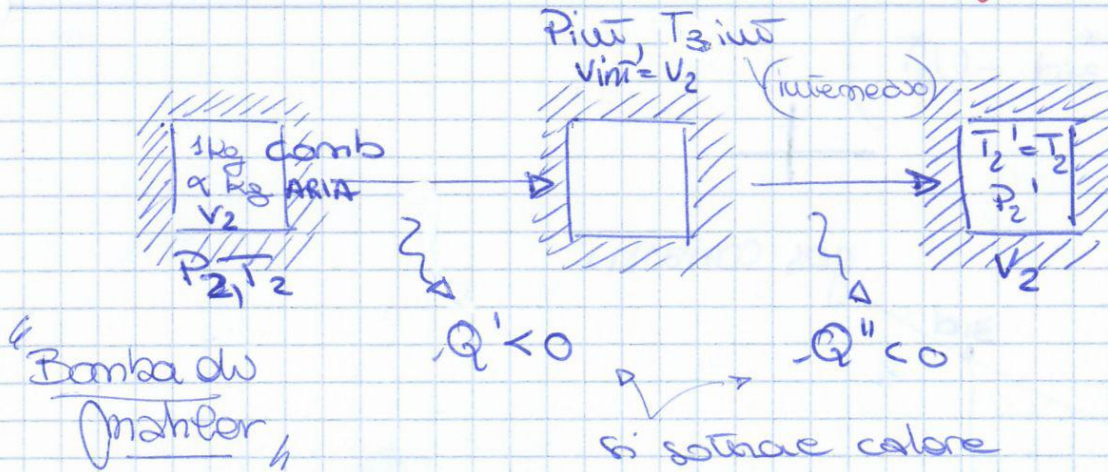 Pint, T3 int
Vint = V2
(intermedio)
1kg comb
α kg ARIA
V2
P2, T2
T2' = T2
P2'
V2
-Q' < 0
-Q'' < 0
"Bomba di
Mahler"
si sottrae calore